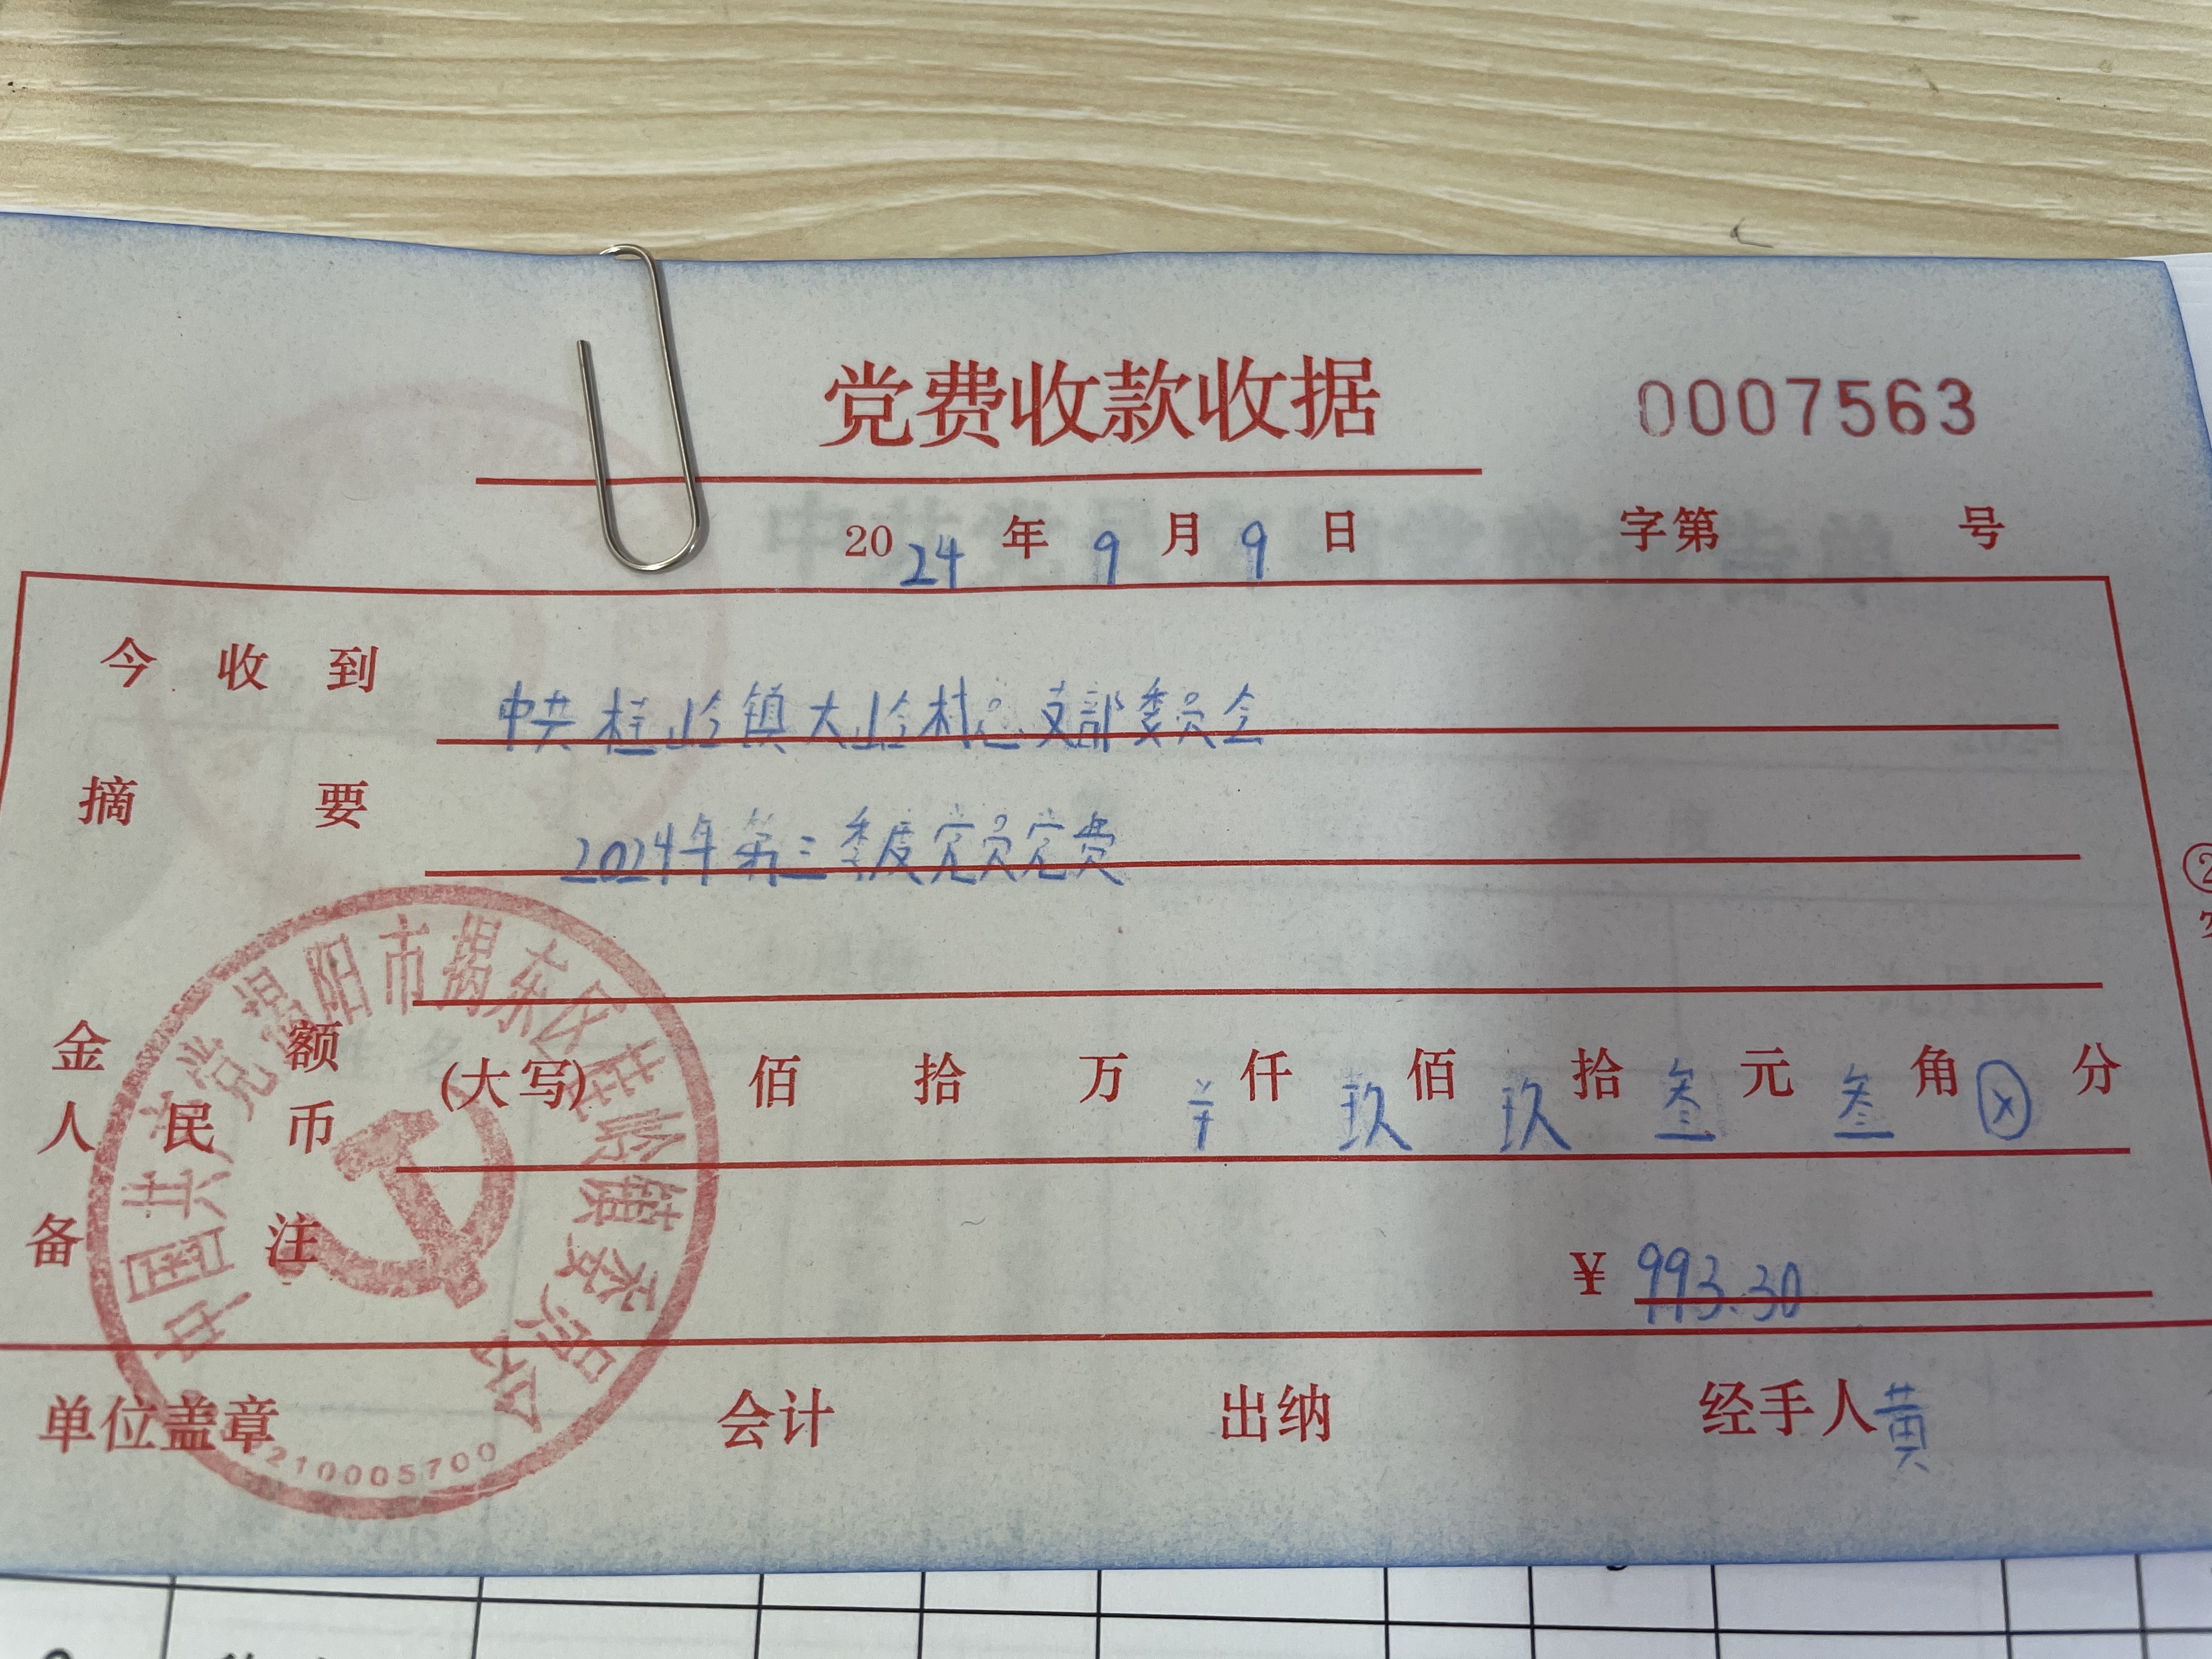 党费收款收据
0007563
2024年9月9日 字第 号
今收到 中共桂岭镇大岭村总支部委员会
摘要 2024年第三季度党员党费
金额
人民币
(大写) 佰 拾 万 ¥仟 玖佰 玖拾 叁元 叁角 ⊗分
备注 ¥993.30
单位盖章 会计 出纳 经手人 黄
中国共产党揭阳市揭东区桂岭镇委员会
210005700
②